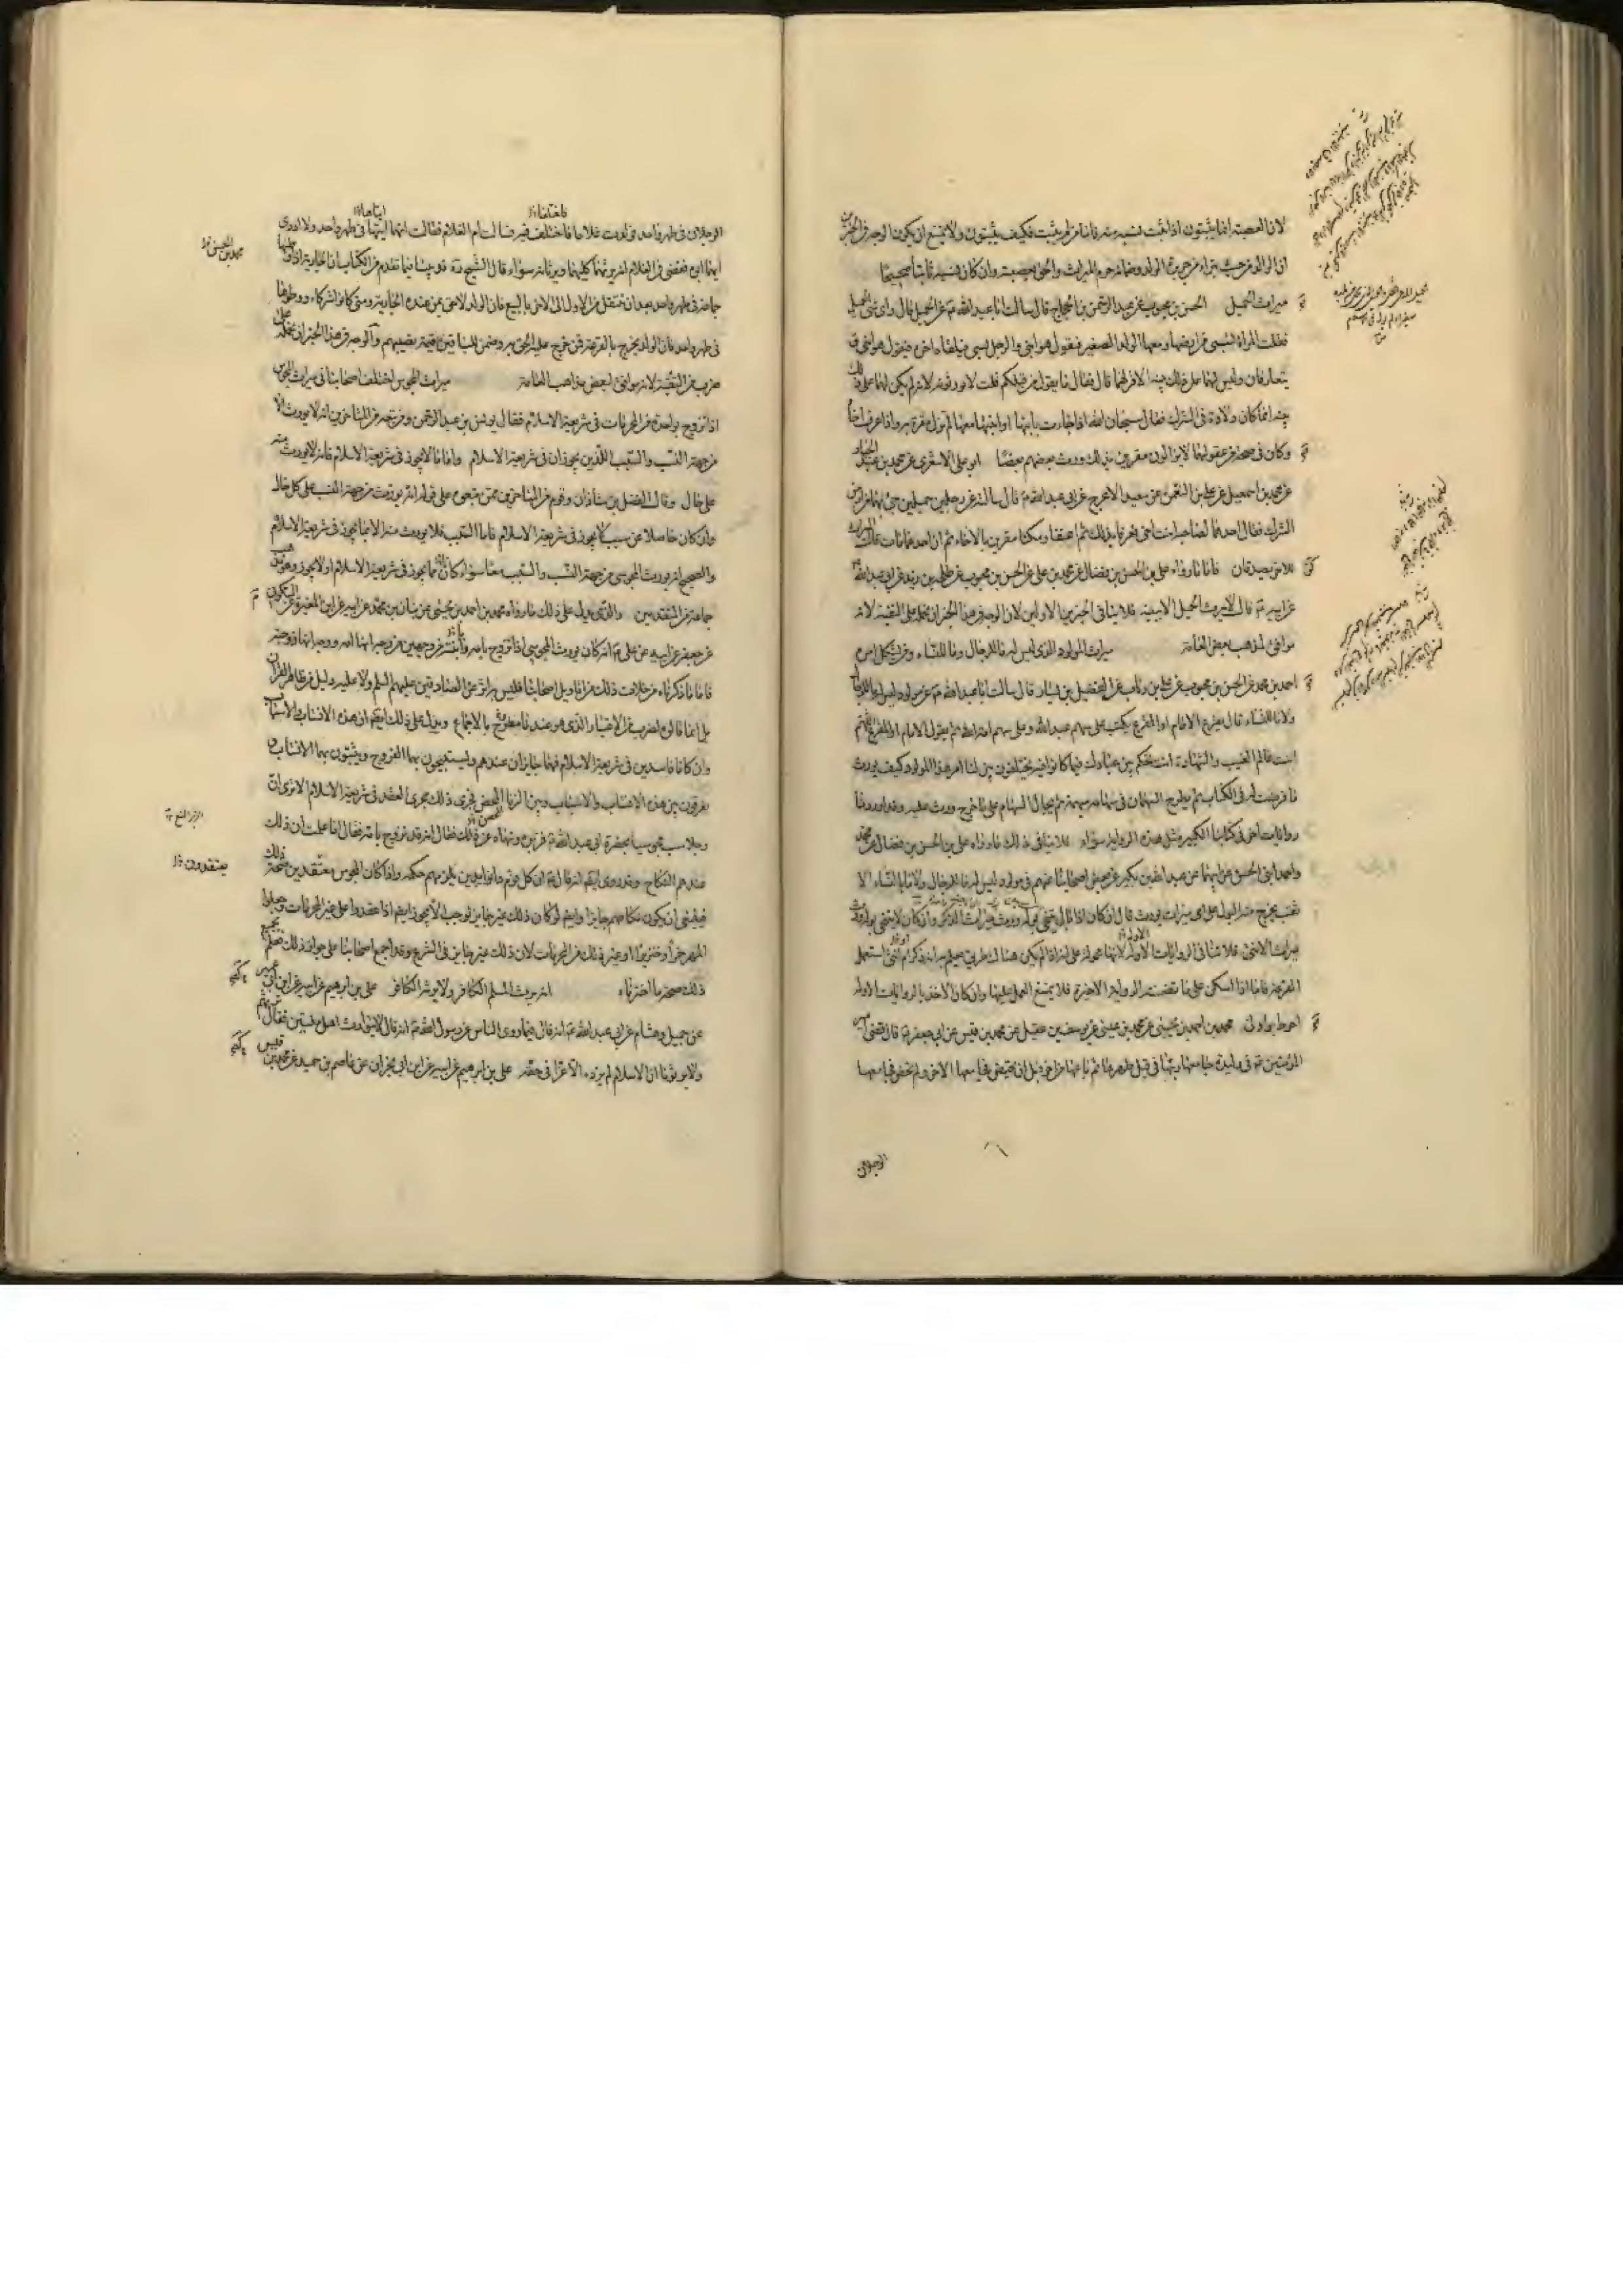 لان العصبة انما يثبتون اذا ثبت نسبه منه فاما من لم يثبت فكيف يثبتون ولا يمتنع ان يكون الوجه في الخبرين
ان الوالد من حيث تبرأ من جريرة الولد وضمانه حرم الميراث والحق بعصبته وان كان نسبه ثابتا صحيحا
ميراث الحميل الحسن بن محبوب عن عبد الرحمن بن الحجاج قال سالت ابا عبد الله ع عن الحميل قال واي شئ الحميل
فقلت المراة تسبى من ارضها ومعها الولد الصغير فيقول هو ابني والرجل يسبى فيلقاه اخوه فيقول هو اخي ق
يتعارفان وليس لهما على ذلك بينة الا قولهما قال فقال فما يقول من قبلكم قلت لا يورثونه لانه لم يكن لهما على ذلك
بينة انما كان ولادة في الشرك فقال سبحان الله اذا جاءت بابنها او ابنتها معها لم تزل مقرة به واذا عرف اخاه
وكان في صحة من عقولهما لا يزالون مقرين بذلك ورث بعضهم بعضا ابو علي الاشعري عن محمد بن عبد الجبار
عن محمد بن اسمعيل عن علي بن النعمن عن سعيد الاعرج عن ابي عبد الله ع قال سالته عن رجلين حميلين جئ بهما من ارض
الشرك فقال احدهما لصاحبه انت اخي فعرفا بذلك ثم اعتقا ومكثا مقرين بالاخاء ثم ان احدهما مات فقال الميراث
للاخ يصدقان فاما ما رواه علي بن الحسن بن فضال عن محمد بن علي عن الحسن بن محبوب عن طلحة بن زيد عن ابي عبد الله
عن ابيه ع قال لا يورث الحميل الا ببينة فلا ينافي الخبرين الاولين لان الوجه في هذا الخبر ان نحمله على التقية لانه
موافق لمذهب بعض العامة ميراث المولود الذي ليس له ما للرجال وما للنساء ومن يشكل امره
احمد بن محمد عن الحسن بن محبوب عن علي بن رئاب عن الفضيل بن يسار قال سالت ابا عبد الله ع عن مولود ليس له ما للرجال
ولا ما للنساء قال يقرع الامام او المقرع يكتب على سهم عبد الله وعلى سهم امة الله ثم يقول الامام او المقرع اللهم
انت عالم الغيب والشهادة انت تحكم بين عبادك فيما كانوا فيه يختلفون بين لنا امر هذا المولود كيف يورث
ما فرضت له في الكتاب ثم يطرح السهمان في سهام مبهمة ثم يجال السهام على ما خرج ورث عليه وقد اوردنا
روايات اخرى في كتابنا الكبير مثل هذه الرواية سواء فلا ينافي ذلك ما رواه علي بن الحسن بن فضال عن محمد
واحمد ابني الحسن عن ابيهما عن عبد الله بن بكير عن بعض اصحابنا عنهم في مولود ليس له ما للرجال ولا ما للنساء الا
ثقب يخرج منه البول على اي ميراث يورث قال ان كان اذا بال يتنحى بوله ورث ميراث الذكر وان كان لا يتنحى بوله ورث
ميراث الانثى فلا ينافي الروايات الاولة لانها محمولة على انه اذا لم يكن هناك طريق يعلم به انه ذكر ام انثى استعمل
القرعة فاما اذا امكن على ما تضمنته الرواية الاخيرة فلا يمتنع العمل عليها وان كان الاخذ بالروايات الاولة
احوط واولى محمد بن احمد بن يحيى عن محمد بن عيسى عن يوسف بن عقيل عن محمد بن قيس عن ابي جعفر ع قال قضى امير
المؤمنين ع في وليدة جامعها ربها في قبل طهرها ثم باعها من اخر قبل ان تحيض فجامعها الاخر ولم تحض فجامعها
الرجلان
الرجلان في طهر واحد فولدت غلاما فاختلفا فيه فسالت ام الغلام فقالت انهما اتياها في طهر واحد ولا ادري
ايهما ابوه فقضى في الغلام انه يرثهما كليهما ويرثانه سواء قال الشيخ ره قد بينا فيما تقدم من الكتاب ان الجارية اذا وطئها
جماعة في طهر واحد بعد ان تنتقل من الاول الى الاخر بالبيع فان الولد لاحق بمن عنده الجارية ومتى كانوا شركاء ووطئوها
في طهر واحد فان الولد يخرج بالقرعة فمن خرج عليه الحق به وضمن للباقين قيمة نصيبهم والوجه في هذا الخبر ان نحمله على
ضرب من التقية لانه موافق لبعض مذاهب العامة ميراث المجوس اختلف اصحابنا في ميراث المجوس
اذا تزوج بواحدة من المحرمات في شريعة الاسلام فقال يونس بن عبد الرحمن ومن تبعه من المتاخرين انه لا يورث الا
من جهة النسب والسبب اللذين يجوزان في شريعة الاسلام واما ما لا يجوز في شريعة الاسلام فانه لا يورث منه
على حال وقال الفضل بن شاذان وقوم من المتاخرين ممن تبعوه على قوله انه يورث من جهة النسب على كل حال
وان كان حاصلا عن سبب لا يجوز في شريعة الاسلام فاما السبب فلا يورث منه الا بما يجوز في شريعة الاسلام
والصحيح انه يورث المجوسي من جهة النسب والسبب معا سواء كانا مما يجوز في شريعة الاسلام او لا يجوز وهو مذهب
جماعة من المتقدمين والذي يدل على ذلك ما رواه محمد بن احمد بن يحيى عن بنان بن محمد عن ابيه عن ابن المغيرة عن السكوني
عن جعفر عن ابيه عن علي ع انه كان يورث المجوسي اذا تزوج بامه وابنته من وجهين من وجه انها امه ووجه انها زوجته
فاما ما ذكرناه من خلاف ذلك من اقاويل اصحابنا فليس به اثر عن الصادقين عليهم السلم ولا عليه دليل من ظاهر القران
بل انما قالوه لضرب من الاعتبار الذي هو عندنا مطروح بالاجماع ويدل على ذلك ايضا ان هذه الانساب والاسباب
وان كانا فاسدين في شريعة الاسلام فهما جايزان عندهم ويستبيحون بها الفروج ويثبتون بها الانساب و
يفرقون بين هذه الانساب والاسباب وبين الزنا المحض فجرى ذلك مجرى العقد في شريعة الاسلام الا ترى ان
رجلا سب مجوسيا بحضرة ابي عبد الله ع فزبره ونهاه عن ذلك فقال انه قد تزوج بامه فقال اما علمت ان ذلك
عندهم النكاح وقد روي ايضا انه قال ع ان كل قوم دانوا بدين يلزمهم حكمه واذا كان المجوس معتقدين صحة ذلك
فينبغي ان يكون نكاحهم جايزا وايضا لو كان ذلك غير جايز لوجب الا يجوز ايضا اذا عقدوا على غير المحرمات وجعلوا
المهر خمرا او خنزيرا او غير ذلك من المحرمات لان ذلك غير جايز في الشرع وقد اجمع اصحابنا على جواز ذلك فعلم بجميع
ذلك صحة ما اخترناه انه يرث المسلم الكافر ولا يرثه الكافر علي بن ابرهيم عن ابيه عن ابن ابي عمير
عن جميل وهشام عن ابي عبد الله ع انه قال فيما روى الناس عن رسول الله ص انه قال لا يتوارث اهل ملتين فقال نرثهم
ولا يرثونا ان الاسلام لم يزده الا عزا في حقه علي بن ابرهيم عن ابيه عن ابن ابي نجران عن عاصم بن حميد عن محمد بن قيس
محمد بن الحسن
معتقدون